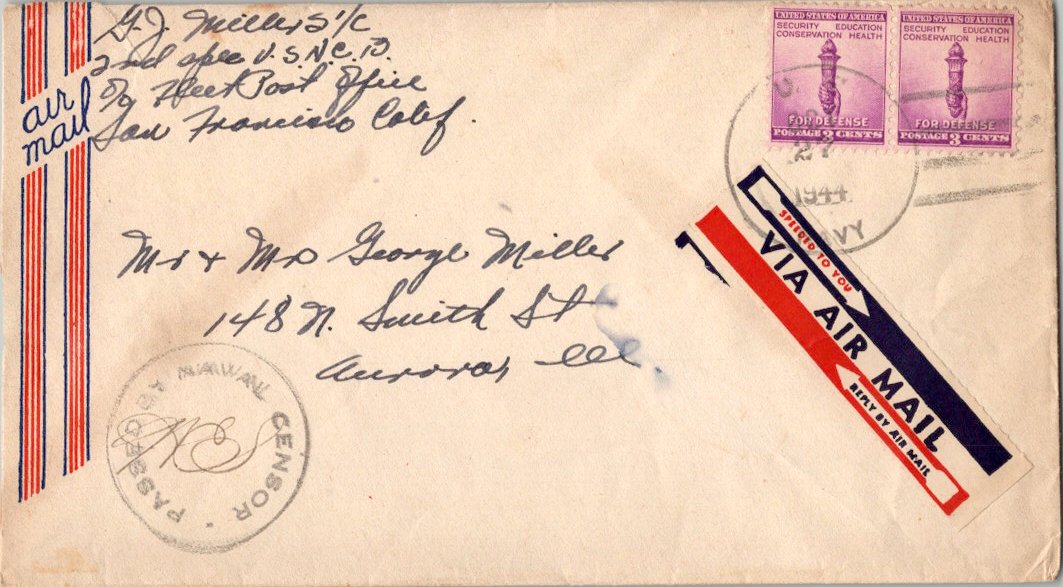 air
mail
G. J. Miller S 1/c
2nd spec U.S.N.C.B.
c/o Fleet Post Office
San Francisco Calif.
UNITED STATES OF AMERICA
SECURITY EDUCATION
CONSERVATION HEALTH
FOR DEFENSE
POSTAGE 3 CENTS
UNITED STATES OF AMERICA
SECURITY EDUCATION
CONSERVATION HEALTH
FOR DEFENSE
POSTAGE 3 CENTS
27
1944
NAVY
SPEEDED TO YOU
VIA AIR MAIL
REPLY BY AIR MAIL
Mr + Mrs George Miller
148 N. Smith St
Aurora, Ill
PASSED BY NAVAL CENSOR